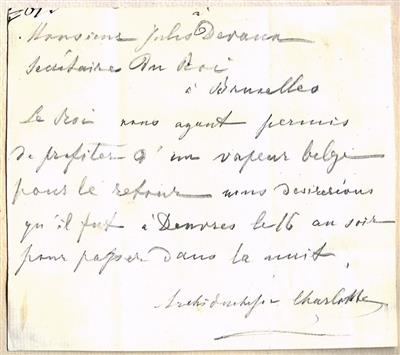 à
Monsieur Jules Devaux
Secrétaire du Roi
à Bruxelles
Le Roi nous ayant permis
de profiter d'un vapeur belge
pour le retour nous désirerions
qu'il fut à Douvres le 16 au soir
pour passer dans la nuit.
Archiduchesse Charlotte